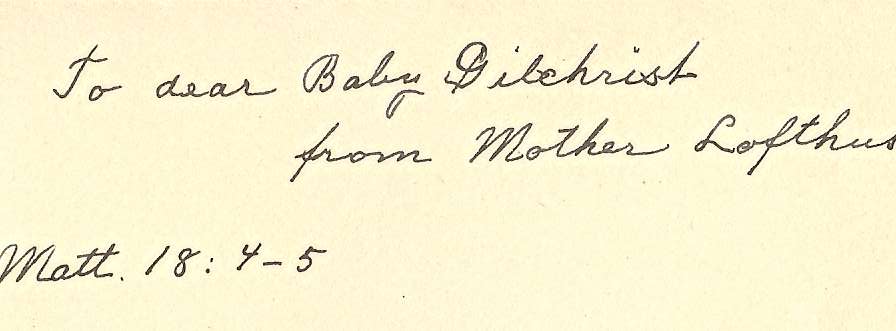 To dear Baby Gilchrist
from Mother Lofthus
Matt. 18:4-5